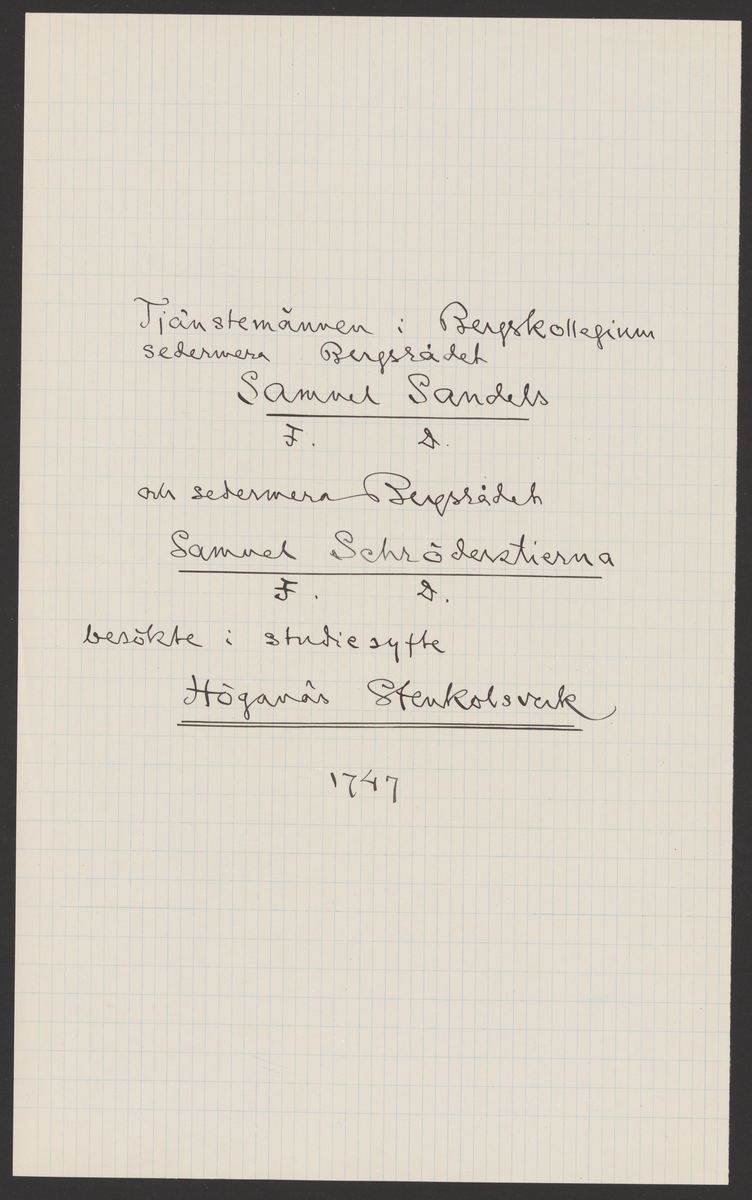 Tjänstemännen i Bergskollegium
sedermera Bergsrådet
Samuel Sandels
F. D.
och sedermera Bergsrådet
Samuel Schröderstierna
F. D.
besökte i studiesyfte
Höganäs Stenkolsverk
1747